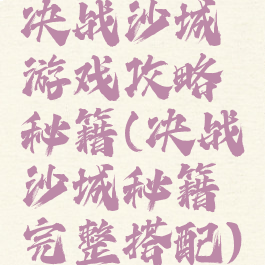 决战沙城
游戏攻略
秘籍(决战
沙城秘籍
完整搭配)